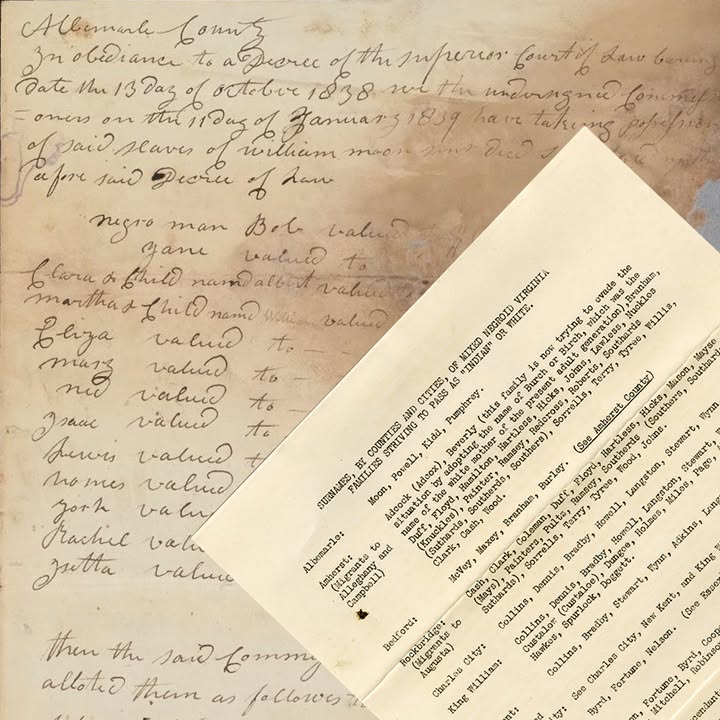 Albemarle County
In obediance to a Decree of the superior Court of Law bearing
Date the 13 day of octobre 1838 we the undersigned Commis
=oners on the 11 day of January 1839 have takeing possession
of said slaves of william moon
afore said Decree of Law
negro man Bob valued
Jane valued to
Clara & Child namd albert valued
martha & Child namd valued
Eliza valued to
mary valued to
ned valued to
Isaac valued to
Lewis valued t
valued
york valu
Rachel valu
valued
then the said Commi
alloted them as follows
SURNAMES, BY COUNTIES AND CITIES, OF MIXED NEGROID VIRGINIA
FAMILIES STRIVING TO PASS AS "INDIAN" OR WHITE.
Albemarle: Moon, Powell, Kidd, Pumphrey.
Amherst: Adcock (Adcox), Beverly (this family is now trying to evade the
(Migrants to situation by adopting the name of Burch or Birch, which was the
Alleghany and name of the white mother of the present adult generation), Branham,
Campbell) Duff, Floyd, Hamilton, Hartless, Hicks, Johns, Lawless, Nuckles
(Knuckles), Painter, Ramsey, Redcross, Roberts, Southards
(Suthards, Southerds, Southers), Sorrells, Terry, Tyree, Willis,
Clark, Cash, Wood.
Bedford: McVey, Maxey, Branham, Burley. (See Amherst County)
Rockbridge: Cash, Clark, Coleman, Duff, Floyd, Hartless, Hicks, Mason, Mayse
(Migrants to (Mays), Painters, Pults, Ramsey, Southerds (Southers, Southards
Augusta) Suthards), Sorrells, Terry, Tyree, Wood, Johns.
Charles City: Collins, Dennis, Bradby, Howell, Langston, Stewart, Wynn
King William: Collins, Dennis, Bradby, Howell, Langston, Stewart, W
Custalow (Custaloe), Dungoe, Holmes, Miles, Page,
Hawkes, Spurlock, Doggett.
Collins, Bradby, Stewart, Wynn, Adkins, Lan
City: See Charles City, New Kent, and King W
Byrd, Fortune, Nelson. (See
Fortune, Byrd, Coo
Mitchell, Robinson